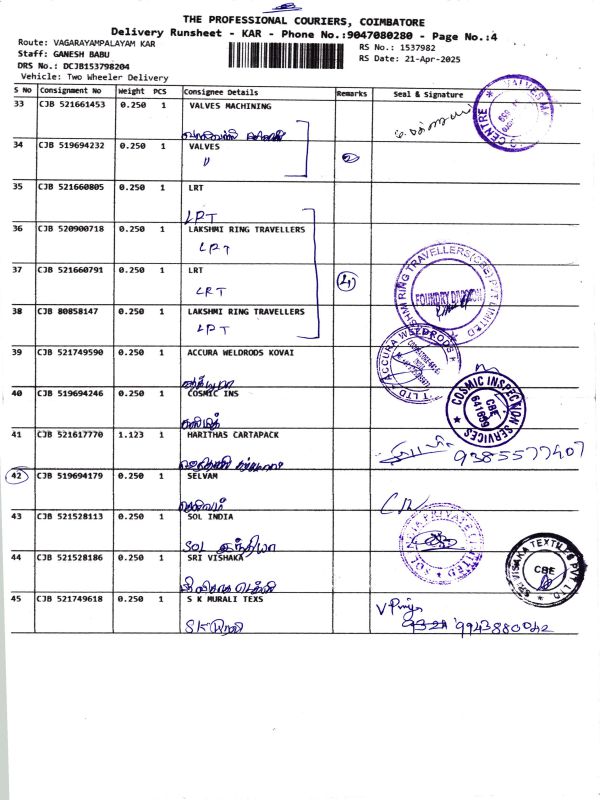 THE PROFESSIONAL COURIERS, COIMBATORE
Delivery Runsheet - KAR - Phone No.:9047080280 - Page No.:4
Route: VAGARAYAMPALAYAM KAR
RS No.: 1537982
Staff: GANESH BABU
RS Date: 21-Apr-2025
DRS No.: DCJB153798204
Vehicle: Two Wheeler Delivery
S No Consignment No Weight PCS Consignee Details Remarks Seal & Signature
33 CJB 521661453 0.250 1 VALVES MACHINING
34 CJB 519694232 0.250 1 VALVES
"
2
35 CJB 521660805 0.250 1 LRT
LRT
36 CJB 520900718 0.250 1 LAKSHMI RING TRAVELLERS
LRT
37 CJB 521660791 0.250 1 LRT
LRT
4
38 CJB 80858147 0.250 1 LAKSHMI RING TRAVELLERS
LRT
LAKSHMI RING TRAVELLERS (CBE) PVT LIMITED
FOUNDRY DIVISION
39 CJB 521749590 0.250 1 ACCURA WELDRODS KOVAI
ACCURA WELDRODS
40 CJB 519694246 0.250 1 COSMIC INS
COSMIC INSPECTION SERVICES
CBE
641659
41 CJB 521617770 1.123 1 HARITHAS CARTAPACK
9385577407
42 CJB 519694179 0.250 1 SELVAM
செல்வம்
43 CJB 521528113 0.250 1 SOL INDIA
SOL இந்தியா
44 CJB 521528186 0.250 1 SRI VISHAKA
SRI VISAKA TEXTILES PVT LTD
CBE
45 CJB 521749618 0.250 1 S K MURALI TEXS
SK முரளி
9943880042